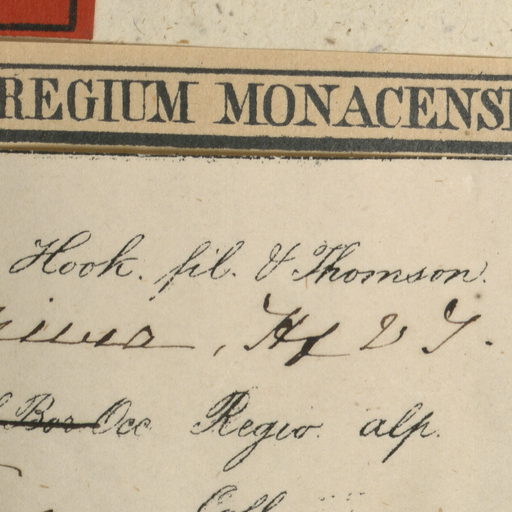 REGIUM MONACENS
Hook. fil. & Thomson.
, Hf & T.
Bor Occ Regio. alp.